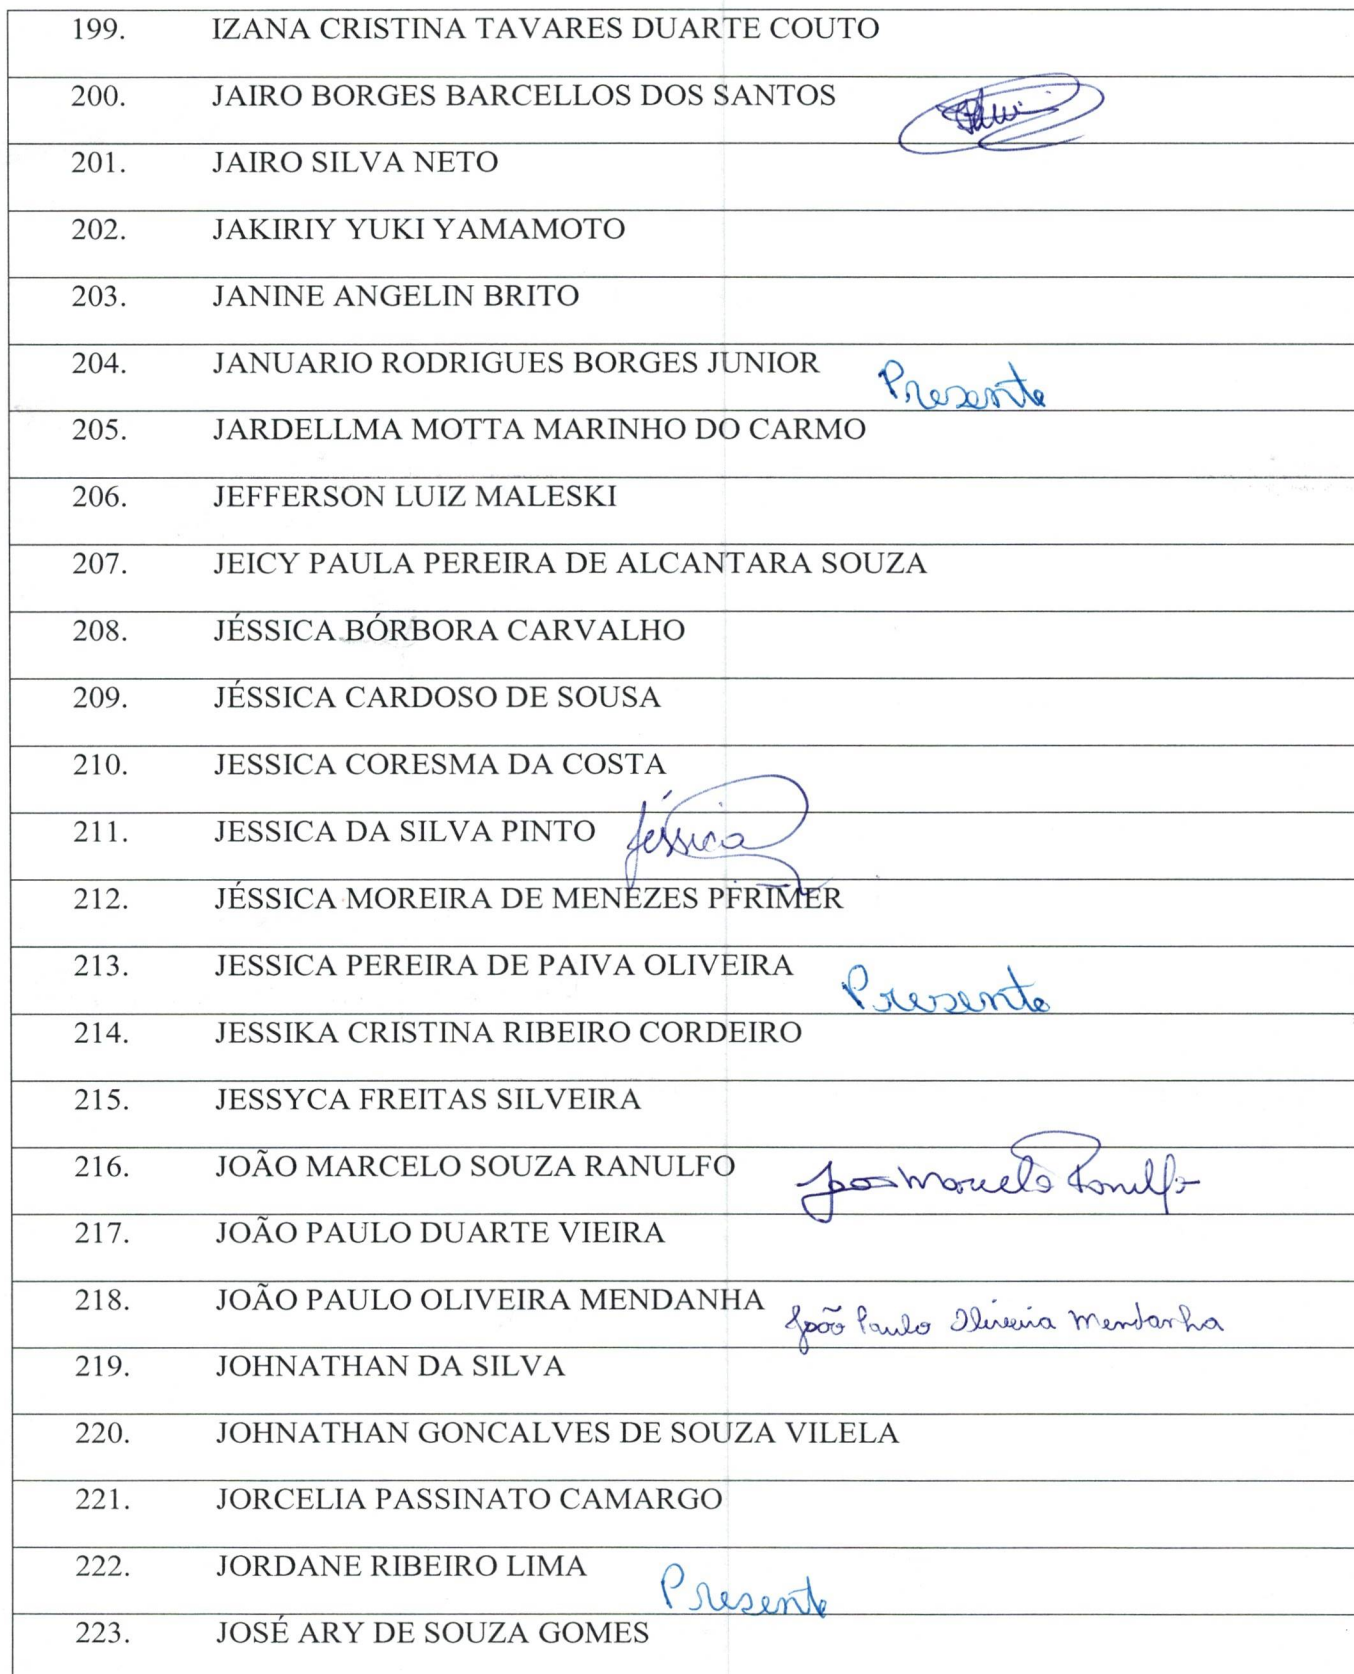 199. IZANA CRISTINA TAVARES DUARTE COUTO
200. JAIRO BORGES BARCELLOS DOS SANTOS
201. JAIRO SILVA NETO
202. JAKIRIY YUKI YAMAMOTO
203. JANINE ANGELIN BRITO
204. JANUARIO RODRIGUES BORGES JUNIOR Presente
205. JARDELLMA MOTTA MARINHO DO CARMO
206. JEFFERSON LUIZ MALESKI
207. JEICY PAULA PEREIRA DE ALCANTARA SOUZA
208. JÉSSICA BÓRBORA CARVALHO
209. JÉSSICA CARDOSO DE SOUSA
210. JESSICA CORESMA DA COSTA
211. JESSICA DA SILVA PINTO Jéssica
212. JÉSSICA MOREIRA DE MENEZES PFRIMER
213. JESSICA PEREIRA DE PAIVA OLIVEIRA Presente
214. JESSIKA CRISTINA RIBEIRO CORDEIRO
215. JESSYCA FREITAS SILVEIRA
216. JOÃO MARCELO SOUZA RANULFO João Marcelo Ranulfo
217. JOÃO PAULO DUARTE VIEIRA
218. JOÃO PAULO OLIVEIRA MENDANHA João Paulo Oliveira Mendanha
219. JOHNATHAN DA SILVA
220. JOHNATHAN GONCALVES DE SOUZA VILELA
221. JORCELIA PASSINATO CAMARGO
222. JORDANE RIBEIRO LIMA Presente
223. JOSÉ ARY DE SOUZA GOMES